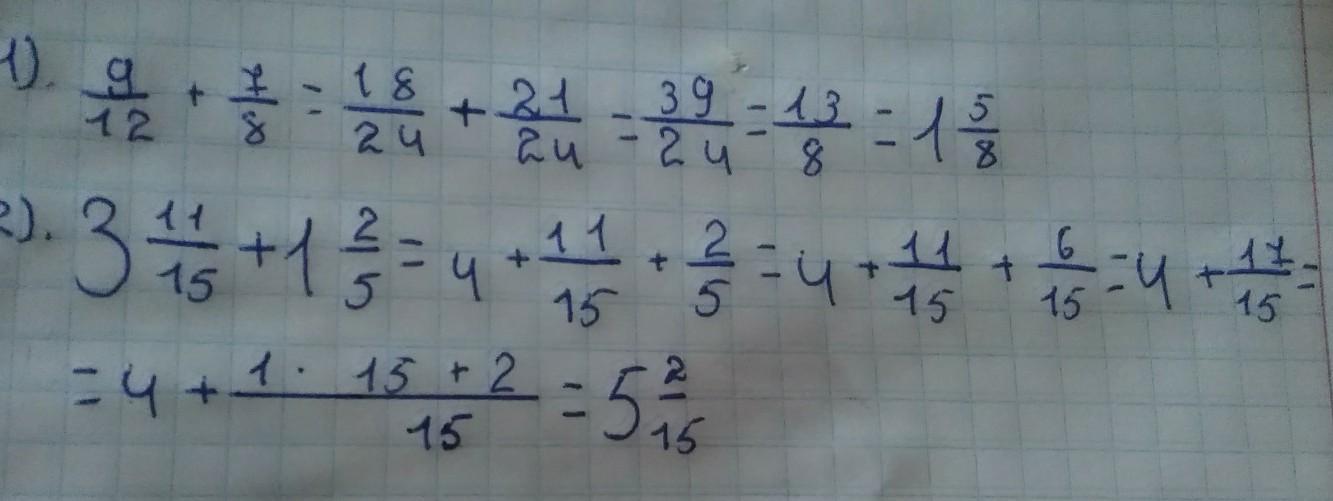 1). 9/12 + 7/8 = 18/24 + 21/24 = 39/24 = 13/8 = 1 5/8
2). 3 11/15 + 1 2/5 = 4 + 11/15 + 2/5 = 4 + 11/15 + 6/15 = 4 + 17/15 =
= 4 + 1 · 15 + 2/15 = 5 2/15